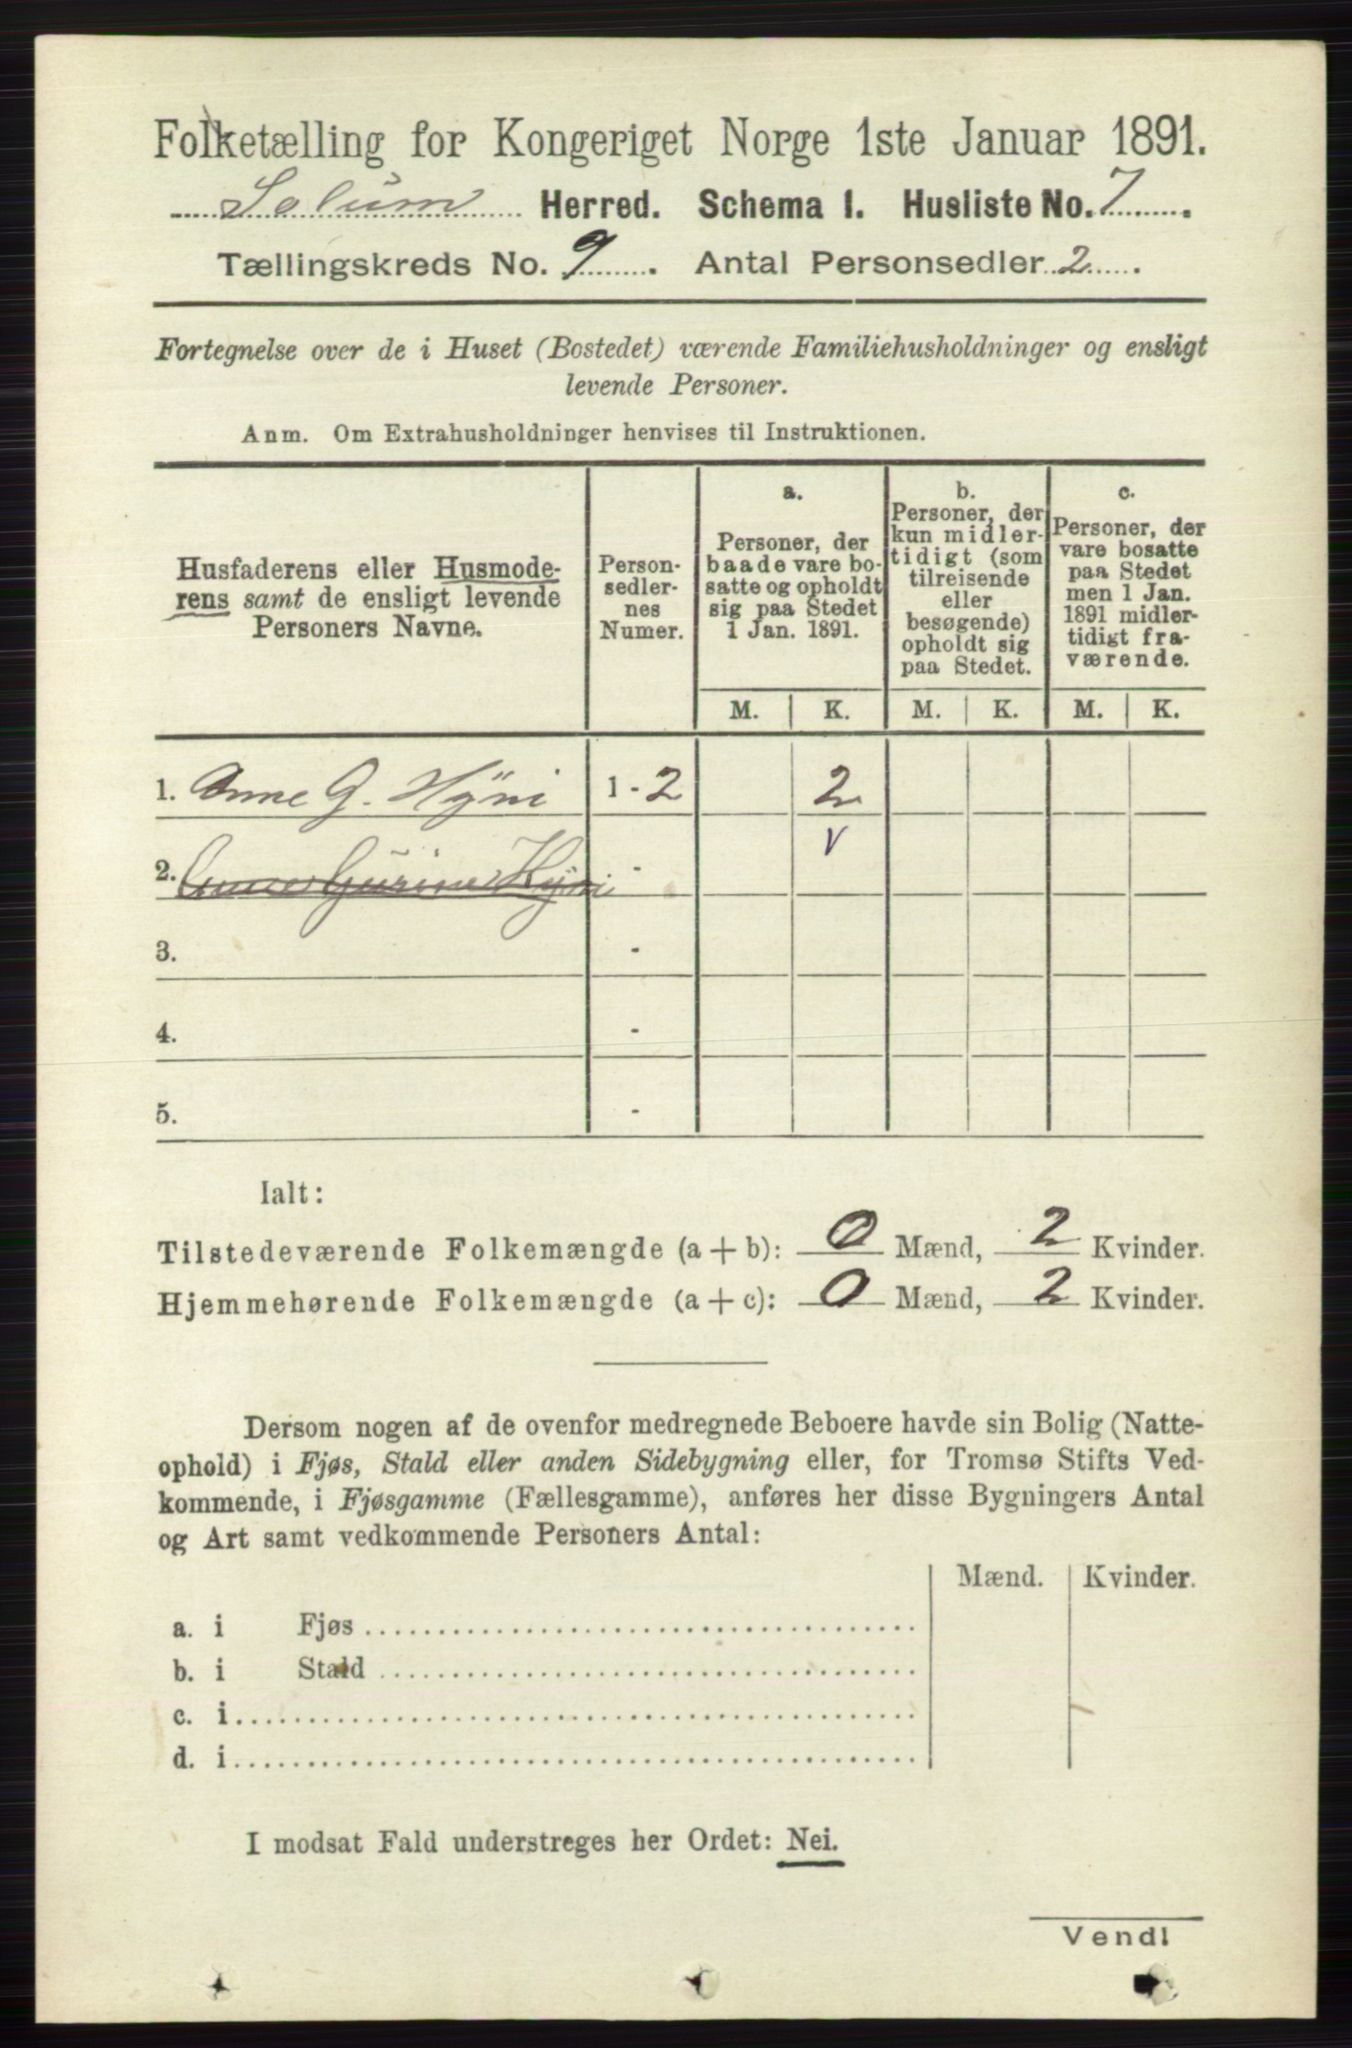 Folketælling for Kongeriget Norge 1ste Januar 1891.
Solum Herred. Schema 1. Husliste No. 7.
Tællingskreds No. 9. Antal Personsedler 2.
Fortegnelse over de i Huset (Bostedet) værende Familiehusholdninger og ensligt
levende Personer.
Anm. Om Extrahusholdninger henvises til Instruktionen.
Husfaderens eller Husmode-
rens samt de ensligt levende
Personers Navne.
Person-
sedler-
nes
Numer.
a.
Personer, der
baade vare bo-
satte og opholdt
sig paa Stedet
1 Jan. 1891.
b.
Personer, der
kun midler-
tidigt (som
tilreisende
eller
besøgende)
opholdt sig
paa Stedet.
c.
Personer, der
vare bosatte
paa Stedet
men 1 Jan.
1891 midler-
tidigt fra-
værende.
M. K. M. K. M. K.
1. Anne G. Hÿni 1 - 2 2
2. Anne Gurine Hÿni - V
3. -
4. -
5. -
Ialt:
Tilstedeværende Folkemængde (a + b): 0 Mænd, 2 Kvinder.
Hjemmehørende Folkemængde (a + c): 0 Mænd, 2 Kvinder.
Dersom nogen af de ovenfor medregnede Beboere havde sin Bolig (Natte-
ophold) i Fjøs, Stald eller anden Sidebygning eller, for Tromsø Stifts Ved-
kommende, i Fjøsgamme (Fællesgamme), anføres her disse Bygningers Antal
og Art samt vedkommende Personers Antal:
Mænd. Kvinder.
a. i Fjøs
b. i Stald
c. i
d. i
I modsat Fald understreges her Ordet: Nei.
Vend!